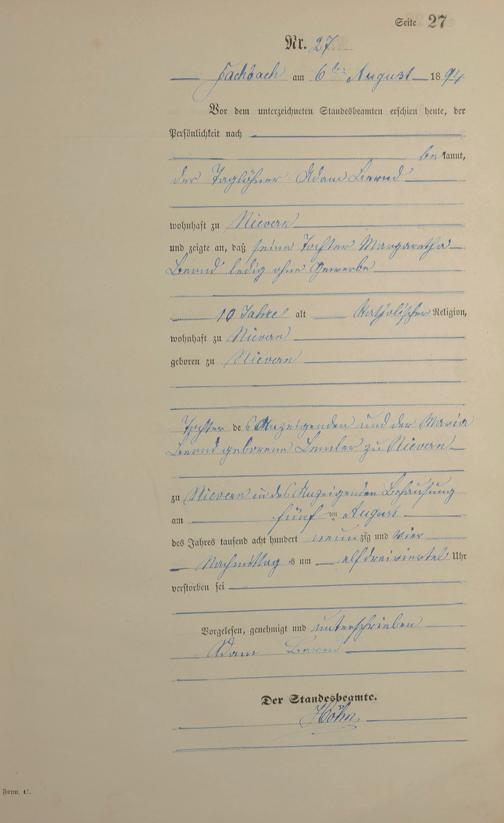 Seite 27
Nr. 27
Fachbach am 6ten August 1894
Vor dem unterzeichneten Standesbeamten erschien heute, der
Persönlichkeit nach
bekannt,
der Taglöhner Adam Bernd
wohnhaft zu Nievern
und zeigte an, daß seine Tochter Margaretha
Bernd ledig ohne Gewerbe
10 Jahre alt Katholischer Religion,
wohnhaft zu Nievern
geboren zu Nievern
Tochter des Anzeigenden und der Maria
Bernd geborene zu Nievern
zu Nievern in des Anzeigenden Behausung
am fünften August
des Jahres tausend acht hundert neunzig und vier
Nachmittags um elf dreiviertel Uhr
verstorben sei
Vorgelesen, genehmigt und unterschrieben
Adam Bernd
Der Standesbeamte.
Höhn
Form. C.